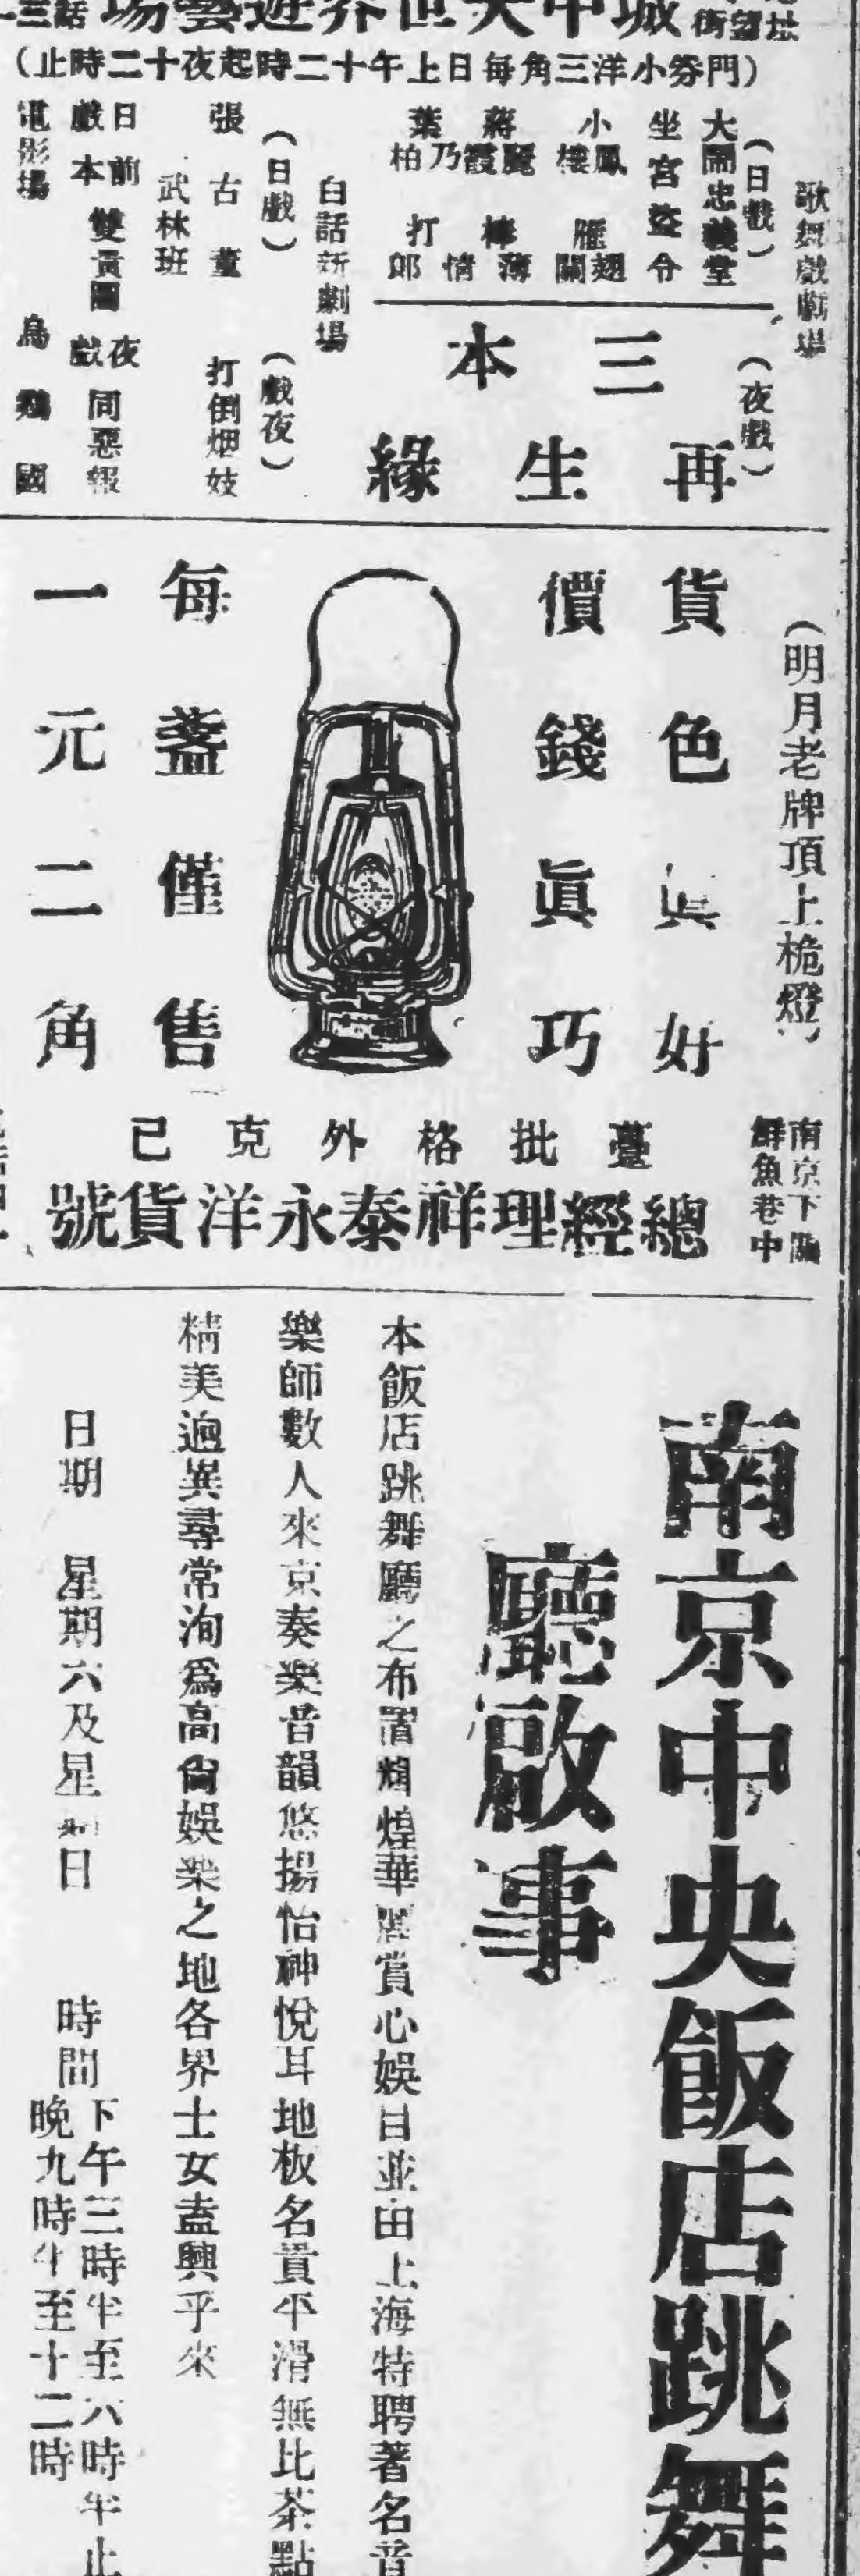 城中大世界遊藝場
（門券小洋三角每日上午十二時起夜十二時止）
歌舞戲劇場
（日戲）
大鬧忠義堂
坐宮盜令
小鳳樓
雁翅關
蔣麗霞
葉乃柏
棒打薄情郎
（夜戲）
三本
再生緣
白話新劇場
（日戲）
張古董
（夜戲）
打倒烟妓
武林班
日戲
前本
雙貴圖
夜戲
同惡報
電影場
烏鷄國
（明月老牌頂上桅燈）
貨色真好
價錢眞巧
每盞僅售
一元二角
南京下關
鮮魚巷中
躉批格外克己
總經理祥泰永洋貨號
南京中央飯店跳舞
廳啟事
本飯店跳舞廳之布置輝煌華麗賞心娛目並由上海特聘著名音
樂師數人來京奏樂音韻悠揚怡神悅耳地板名貴平滑無比茶點
精美迥異尋常洵爲高尙娛樂之地各界士女盍興乎來
日期 星期六及星期日
時間
下午三時半至六時半止
晚九時半至十二時